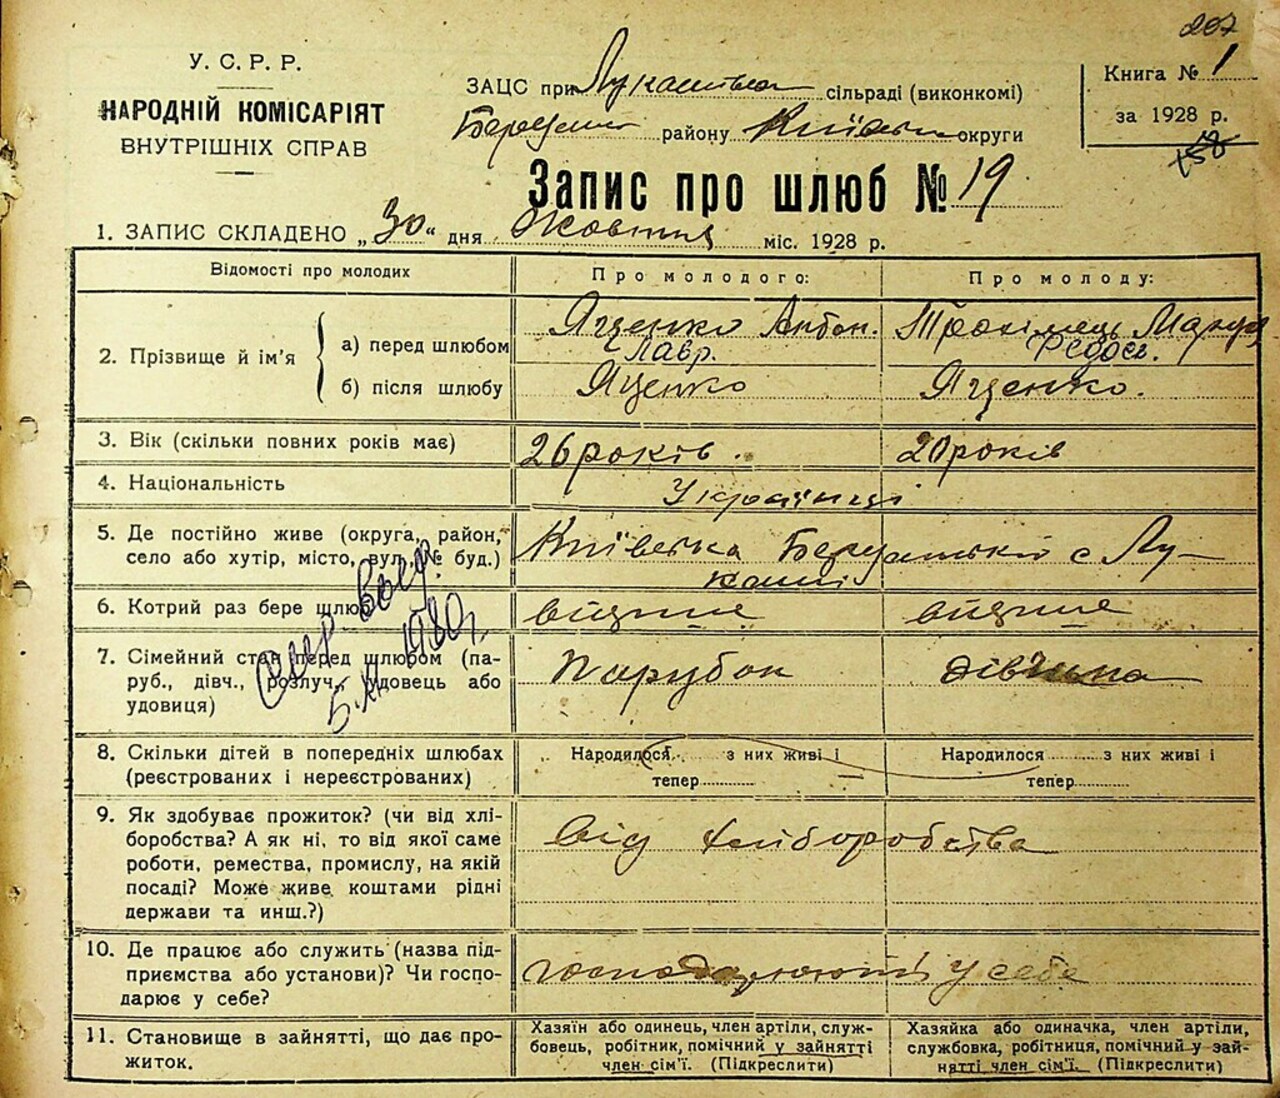 207
У. С. Р. Р.
НАРОДНІЙ КОМІСАРІЯТ
ВНУТРІШНІХ СПРАВ
ЗАЦС при Лукашівка сільраді (виконкомі)
району Київськ округи
Книга № 1
за 1928 р.
158
Запис про шлюб № 19
1. ЗАПИС СКЛАДЕНО „30“ дня Жовтня міс. 1928 р.
Відомості про молодих
Про молодого:
Про молоду:
2. Прізвище й ім'я
а) перед шлюбом
Яценко Антон. Лавр.
Федос.
б) після шлюбу
Яценко
Яценко.
3. Вік (скільки повних років має)
26 років.
20 років
4. Національність
Українці
5. Де постійно живе (округа, район,
село або хутір, місто, вул., № буд.)
Київська с Лу-
каші
6. Котрий раз бере шлюб
вперше
вперше
7. Сімейний стан перед шлюбом (па-
руб., дівч., розлуч., удовець або
удовиця)
Парубок
дівчина
5.XI 1980г.
8. Скільки дітей в попередніх шлюбах
(реєстрованих і нереєстрованих)
Народилося з них живі і
тепер
Народилося з них живі і
тепер
9. Як здобуває прожиток? (чи від хлі-
боробства? А як ні, то від якої саме
роботи, ремества, промислу, на якій
посаді? Може живе коштами рідні
держави та инш.?)
від хліборобства
10. Де працює або служить (назва під-
приємства або установи)? Чи госпо-
дарює у себе?
господарюють у себе
11. Становище в зайнятті, що дає про-
житок.
Хазяїн або одинець, член артіли, служ-
бовець, робітник, помічний у зайнятті
член сім'ї. (Підкреслити)
Хазяйка або одиначка, член артіли,
службовка, робітниця, помічний у зай-
нятті член сім'ї. (Підкреслити)